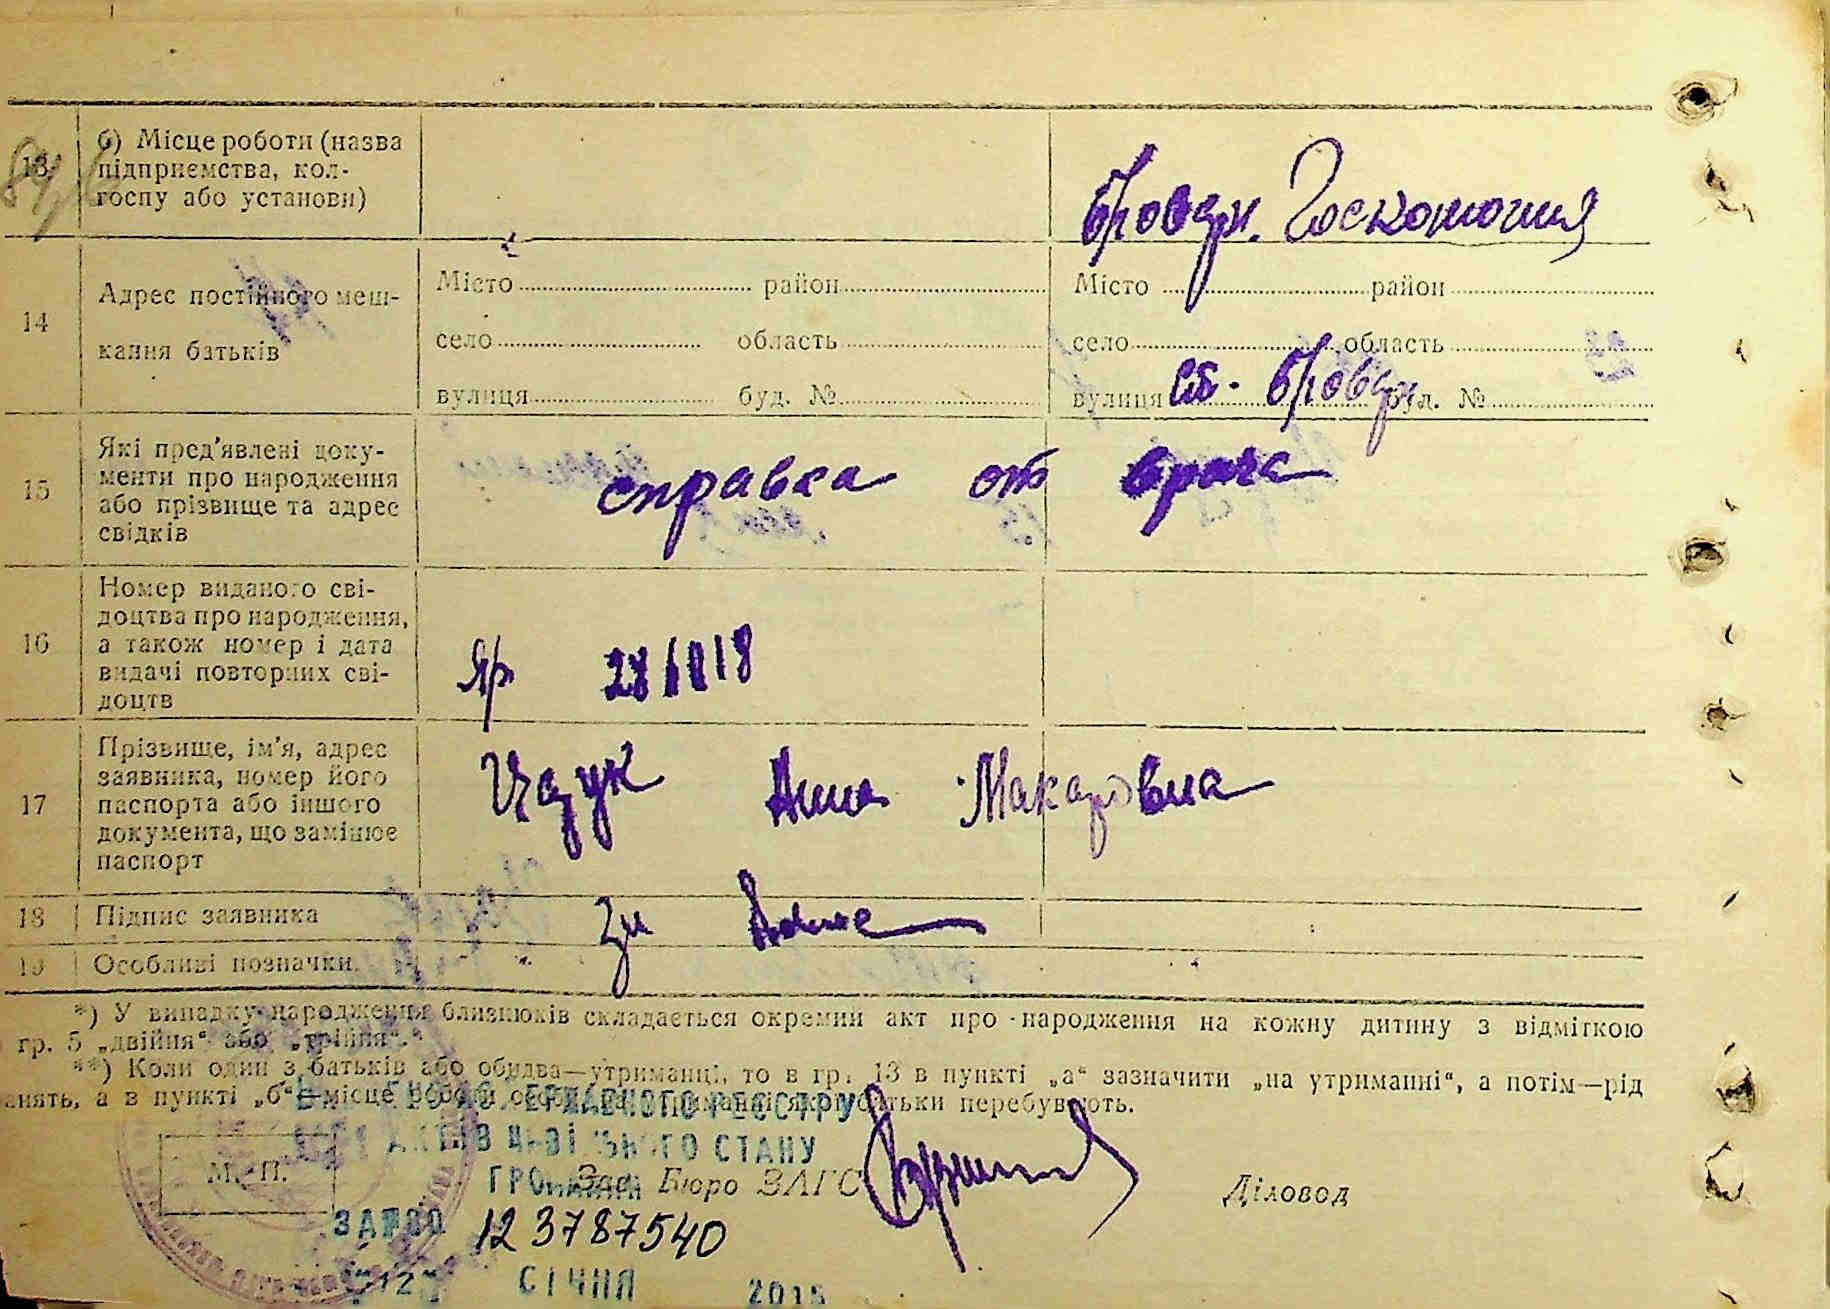 13
б) Місце роботи (назва
підприємства, кол-
госпу або установи)
14
Адрес постійного меш-
кання батьків
Місто район
село область
вулиця буд. №
Місто район
село область
вулиця буд. №
15
Які пред'явлені доку-
менти про народження
або прізвище та адрес
свідків
справка от врача
16
Номер виданого сві-
доцтва про народження,
а також номер і дата
видачі повторних сві-
доцтв
17
Прізвище, ім'я, адрес
заявника, номер його
паспорта або іншого
документа, що замінює
паспорт
Анна Макаровна
18
Підпис заявника
19
Особливі позначки.
*) У випадку народження близнюків складається окремий акт про народження на кожну дитину з відміткою
гр. 5 „двійня“ або „трійня“.
**) Коли один з батьків або обидва—утриманці, то в гр. 13 в пункті „а“ зазначити „на утриманні“, а потім—рід
а в пункті „б“—місце роботи батьки перебувають.
РЕЄСТРУ
АКТІВ СТАНУ
ГРОМАДЯН
М. П.
Зав. Бюро ЗАГС
Діловод
12 3787540
"12" СІЧНЯ 2015